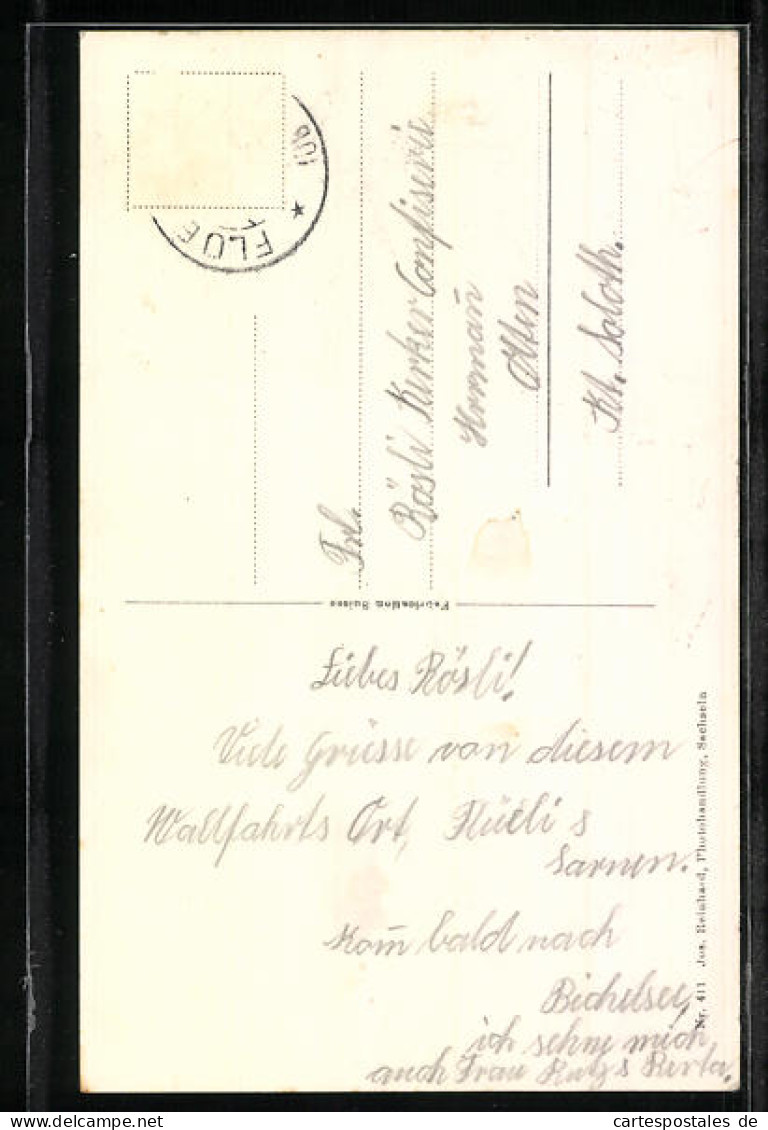 FLÜE
Frl.
Rösli Kerker Confiserie
Herrmañ
Olten
Kt. Soloth.
Fabrication Suisse
Liebes Rösli!
Viele Grüsse von diesem
Wallfahrts Ort, Flüeli s
Sarnen.
Kom̄ bald nach
Bichelsee,
ich sehne mich
auch Frau
Nr. 411 Jos. Reinhard, Photohandlung, Sachseln
cartespostales de